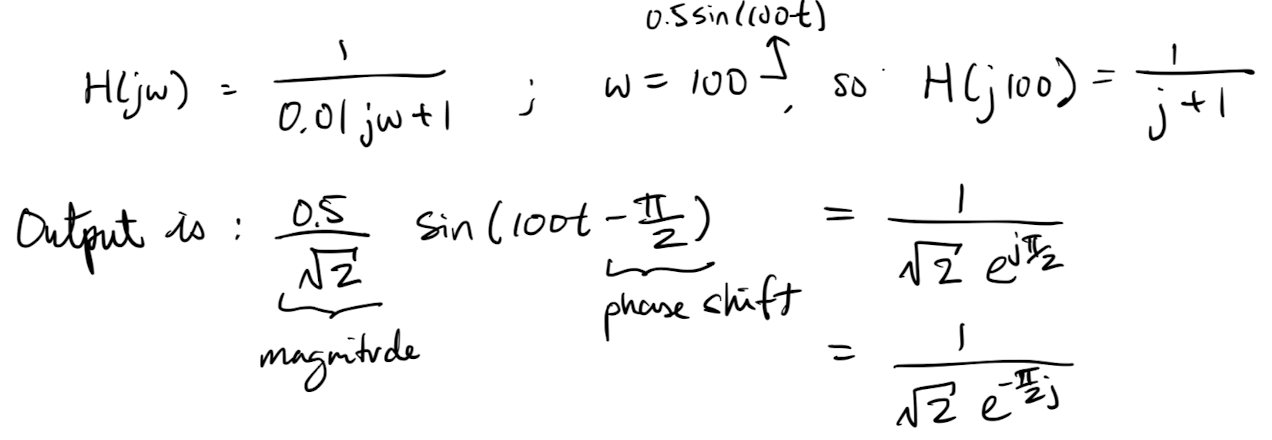 0.5 sin(100t)
H(jw) = 1 / (0.01jw+1) ; w = 100, so H(j100) = 1 / (j+1)
Output is : 0.5/√2 sin(100t - π/2) = 1 / (√2 e^{jπ/2})
magnitude phase shift
= 1 / (√2 e^{-π/2 j})